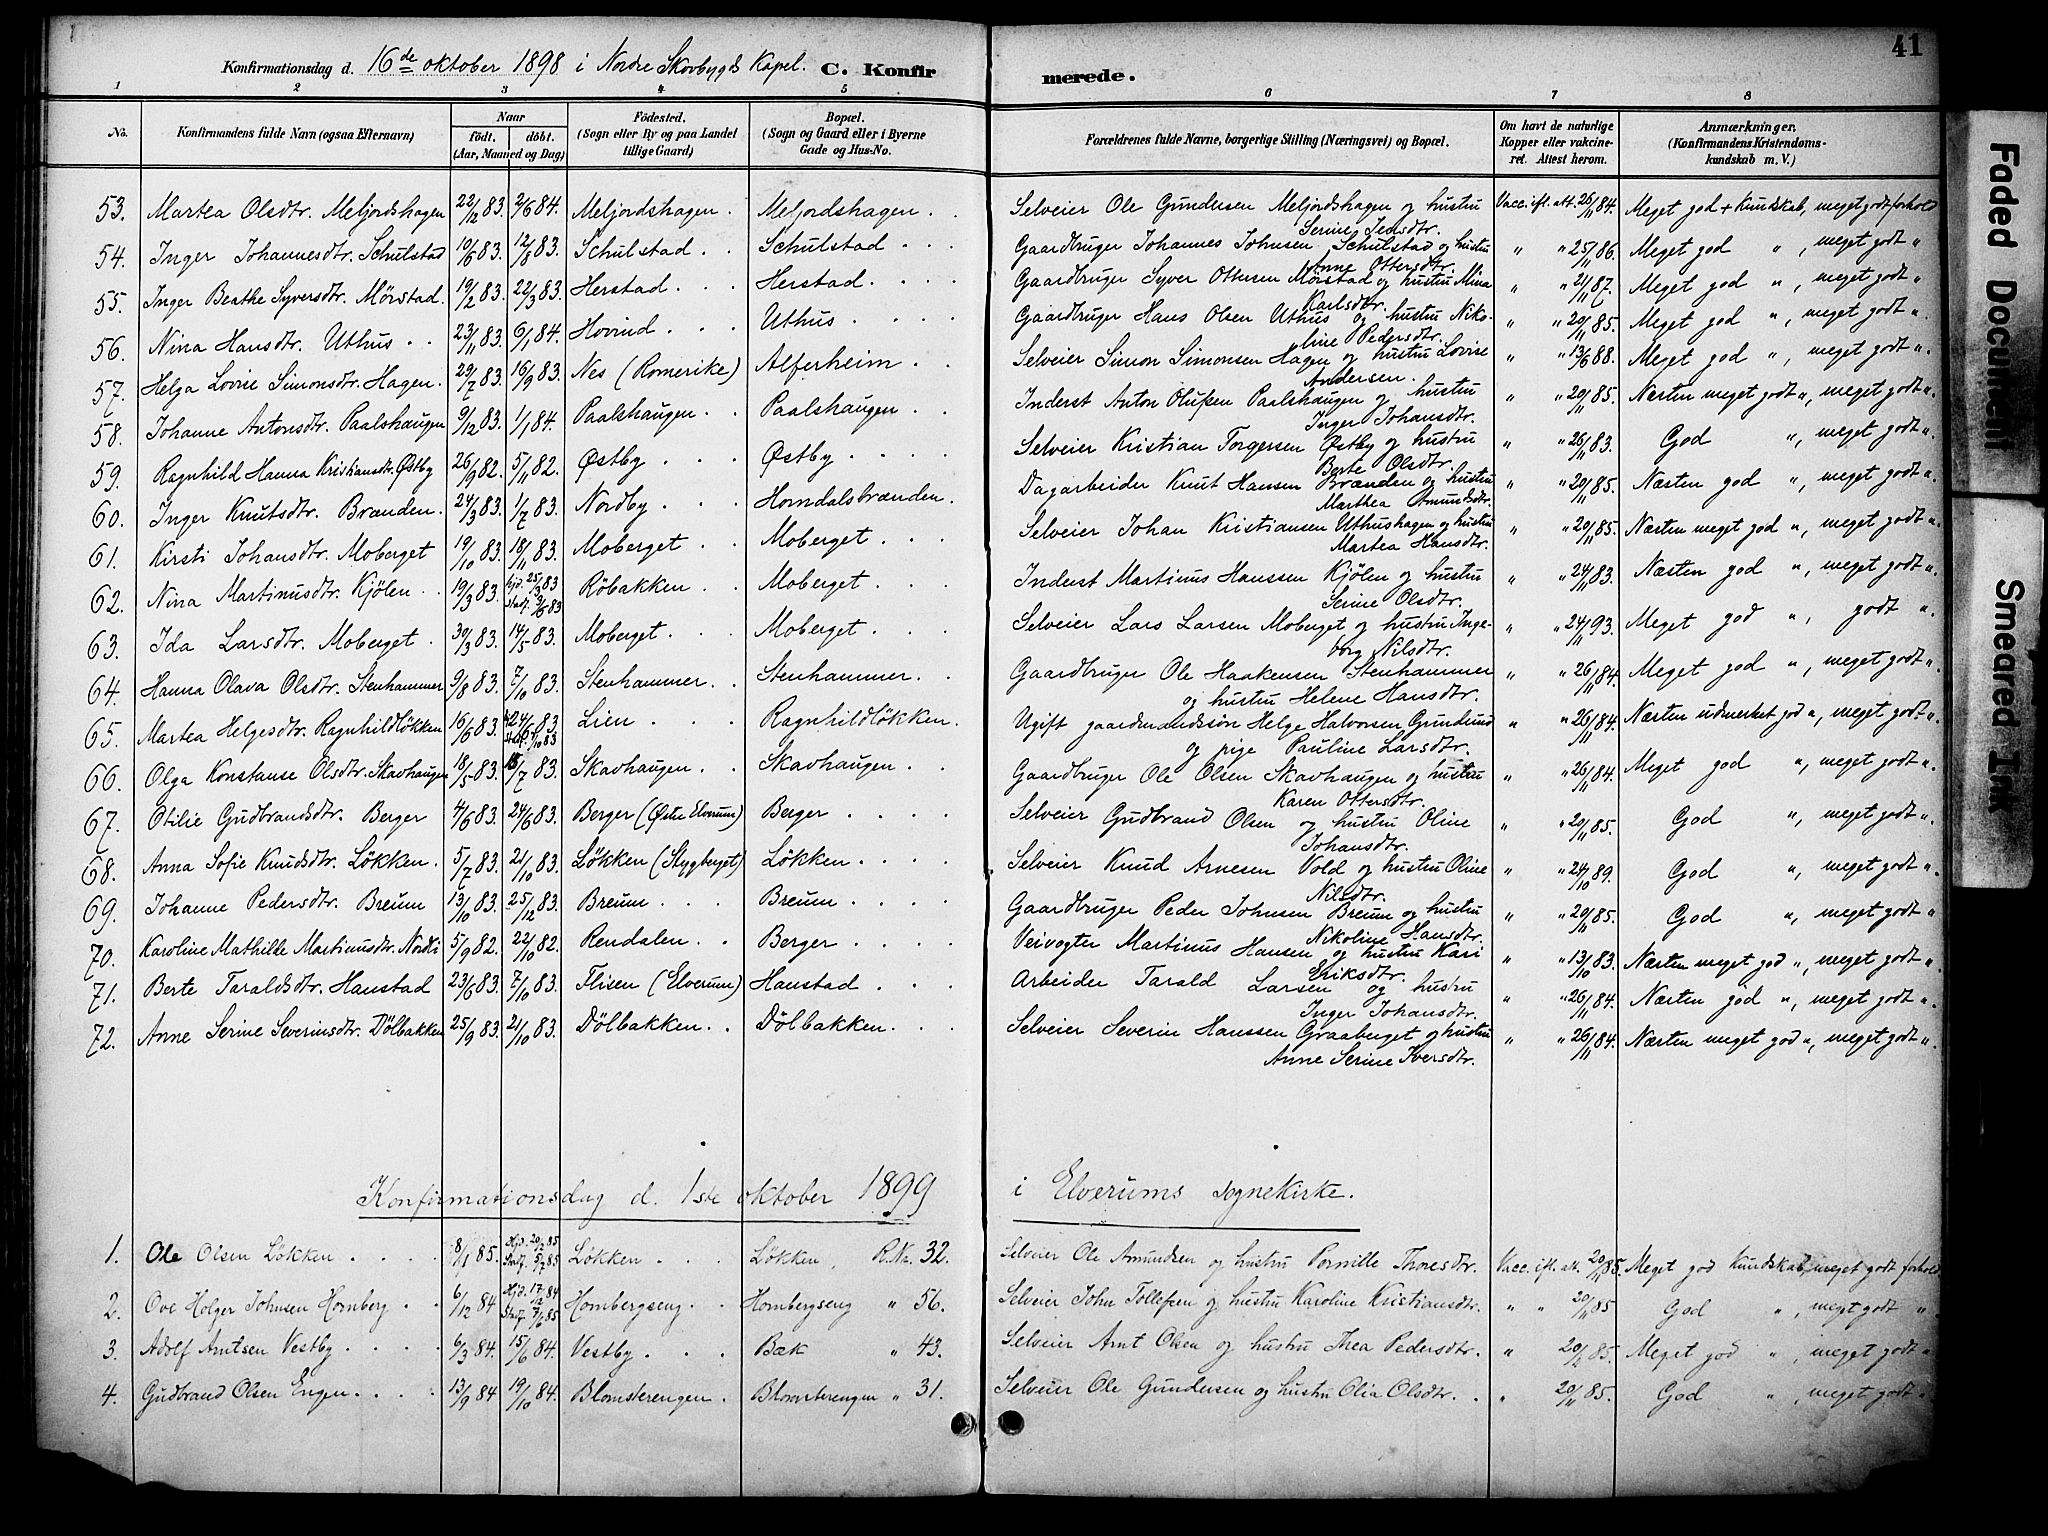 41
Konfirmationsdag d. 16de oktober 1898 i Nordre Skovbygds Kapel. C. Konfirmerede.
1 2 3 4 5 6 7 8
No. Konfirmandens fulde Navn (ogsaa Efternavn) Naar födt. döbt. (Aar, Maaned og Dag) Födested. (Sogn eller By og paa Landet tillige Gaard) Bopæl. (Sogn og Gaard eller i Byerne Gade og Hus-No. Forældrenes fulde Navne, borgerlige Stilling (Næringsvei) og Bopæl. Om havt de naturlige Kopper eller vakcineret. Attest herom. Anmærkninger. (Konfirmandens Kristendomskundskab m. V.)
53. Martea Olsdtr. Meljordshagen 22/12 83. 2/6 84. Meljordshagen. Meljordshagen. Selveier Ole Gundersen Meljordshagen og hustru Serine Jensdtr. Vacc. ifl. att. 26/11 84. Meget god + Kundskab, meget godt forhold
54. Inger Johannesdtr. Schulstad 10/6 83. 12/8 83. Schulstad Schulstad Gaardbruger Johannes Johnsen Schulstad og hustru Anne Ottersdtr. " " 25/11 86. Meget god ", meget godt "
55. Inger Beathe Syversdtr. Mörstad. 19/2 83. 22/3 83. Herstad. Herstad. Gaardbruger Syver Ottesen Mörstad og hustru Mina Karlsdtr. " " 21/11 87. Meget god ", meget godt "
56. Nina Hansdtr. Uthus 23/11 83. 6/1 84. Hovind Uthus Gaardbruger Hans Olsen Uthus og hustru Nikoline Pedersdtr. " " 20/11 85. Meget god ", meget godt ".
57. Helga Lovise Simonsdtr. Hagen. 29/7 83. 16/9 83. Nes (Romerike) Alferheim Selveier Simon Simonsen Hagen og hustru Lovise Andersen. " " 13/6 88. Meget god ", meget godt ".
58. Johanne Antonsdtr. Paalshaugen 9/12 83. 1/1 84. Paalshaugen. Paalshaugen. Inderst Anton Olufsen Paalshaugen og hustru Inger Johansdtr. " " 20/11 85. Næsten meget godt ", meget godt ".
59. Ragnhild Hanna Kristiansdtr. Østby 26/9 82. 5/11 82. Østby Østby Selveier Kristian Torgersen Østby og hustru Berte Olsdtr. " " 26/11 83. God ", meget godt ".
60. Inger Knutsdtr. Brænden. 24/3 83. 1/7 83. Nordby Horndalsbrænden. Dagarbeider Knut Hansen Brænden og hustru Marthea Amundsdtr. " " 20/11 85. Næsten god ", meget godt ".
61. Kirsti Johansdtr. Moberget 19/10 83. 18/11 83. Moberget Moberget Selveier Johan Kristiansen Uthushagen og hustru Martea Hansdtr. " " 20/11 85. Næsten meget god ", meget godt ".
62. Nina Martinusdtr. Kjölen 19/3 83. Hjd. 25/3 83 Stadf. 3/6 83 Röbakken. Moberget. Inderst Martinus Hanssen Kjölen og hustru Serine Olsdtr. " " 24/11 83. Næsten god ", meget godt ".
63. Ida Larsdtr. Moberget. 30/3 83. 14/5 83. Moberget. Moberget Selveier Lars Larsen Moberget og hustru Ingeborg Nilsdtr. " " 24/11 93. Meget god ", godt ".
64. Hanna Olava Olsdtr. Stenhammer 9/8 83. 7/10 83. Stenhammer. Stenhammer. Gaardbruger Ole Haakensen Stenhammer og hustru Helene Hansdtr. " " 26/11 84. Meget god ", meget godt ".
65. Martea Helgesdtr. Ragnhildløkken 16/6 83. 24/6 83 Stadf. 7/10 83 Lien Ragnhildløkken. Ugift gaardmandssön Helge Halvorsen Grundsund og pige Pauline Larsdtr. " " 26/11 84. Næsten udmerket god ", meget godt ".
66. Olga Konstanse Olsdtr. Skavhaugen 18/5 83. 15/7 83. Skavhaugen. Skavhaugen. Gaardbruger Ole Olsen Skavhaugen og hustru Karen Ottersdtr. " " 26/11 84. Meget god ", meget godt ".
67. Otilie Gudbrandsdtr. Berger 4/6 83. 24/6 83. Berger (Østre Elverum) Berger Selveier Gudbrand Olsen og hustru Oline Johansdtr. " " 20/11 85. God ", meget godt ".
68. Anna Sofie Knudsdtr. Løkken. 5/7 83. 21/10 83. Løkken (Stygberget) Løkken Selveier Knud Arnesen Vold og hustru Oline Nilsdtr. " " 24/10 89. God ", meget godt ".
69. Johanne Pedersdtr. Breum 13/10 83. 25/12 83. Breum. Breum. Gaardbruger Peder Johnsen Breum og hustru Nikoline Hansdtr. " " 20/11 85. God ", meget godt ".
70. Karoline Mathilde Martinusdtr. Nordli 5/9 82. 22/10 82. Rendalen. Berger Veivogter Martinus Hansen og hustru Kari Eriksdtr. " " 13/10 83. Næsten meget god ", meget godt ".
71. Berte Taraldsdtr. Hanstad 23/6 83. 7/10 83. Flisen (Elverum) Hanstad Arbeider Tarald Larsen og hustru Inger Johansdtr. " " 26/11 84. Næsten god ", meget godt ".
72. Anne Serine Severinsdtr. Dölbakken 25/9 83. 21/10 83. Dölbakken. Dölbakken. Selveier Severin Hanssen Graaberget og hustru Anne Serine Iversdtr. " " 26/11 84. Næsten meget god ", meget godt ".
Konfirmationsdag d. 1ste oktober 1899 i Elverums Sognekirke.
1. Ole Olsen Løkken 8/1 85. Hjd. 20/2 85 Stadf. 5/7 85 Løkken Løkken, R.Nr. 32. Selveier Ole Amundsen og hustru Pernille Thoresdtr. Vacc. ifl. att. 20/11 85. Meget god Kundskab, meget godt forhold
2. Ove Holger Johnsen Hornberg 6/12 84 Hjd. 17/12 84 Stadf. 7/6 85 Hornbergseng Hornbergseng " 56. Selveier John Tollefsen og hustru Karoline Kristiansdtr. " " 20/11 85 God ", meget godt ".
3. Adolf Arntsen Vestby 6/3 84. 15/6 84. Vestby Bæk " 43. Selveier Arnt Olsen og hustru Thea Pedersdtr. " 20/2 85. Meget god ", meget godt ".
4. Gudbrand Olsen Engen. 13/9 84 19/10 84. Blomsterengen. Blomsterengen " 31. Selveier Ole Gundersen og hustru Olia Olsdtr. " 20/11 85. God ", meget godt "
Faded Document
Smeared Ink